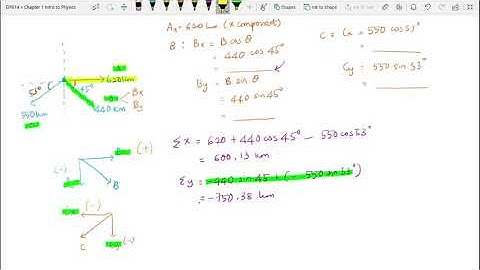 DF014 > Chapter 1 Intro to Physics
Shapes
Ink to shape
Ax = 620 km (x component)
B : Bx = B cos θ
= 440 cos 45°
=
By = B sin θ
= 440 sin 45°
=
C = Cx = 550 cos 53°
=
Cy = 550 sin 53°
=
A
620km
53°
45°
Bx
By
550km
440 km
C
(+)
(-)
B
(-)
C
(-)
Σx = 620 + 440 cos 45° - 550 cos 53°
= 600.13 km
Σy = -440 sin 45 + (- 550 sin 53°)
= -750.38 km